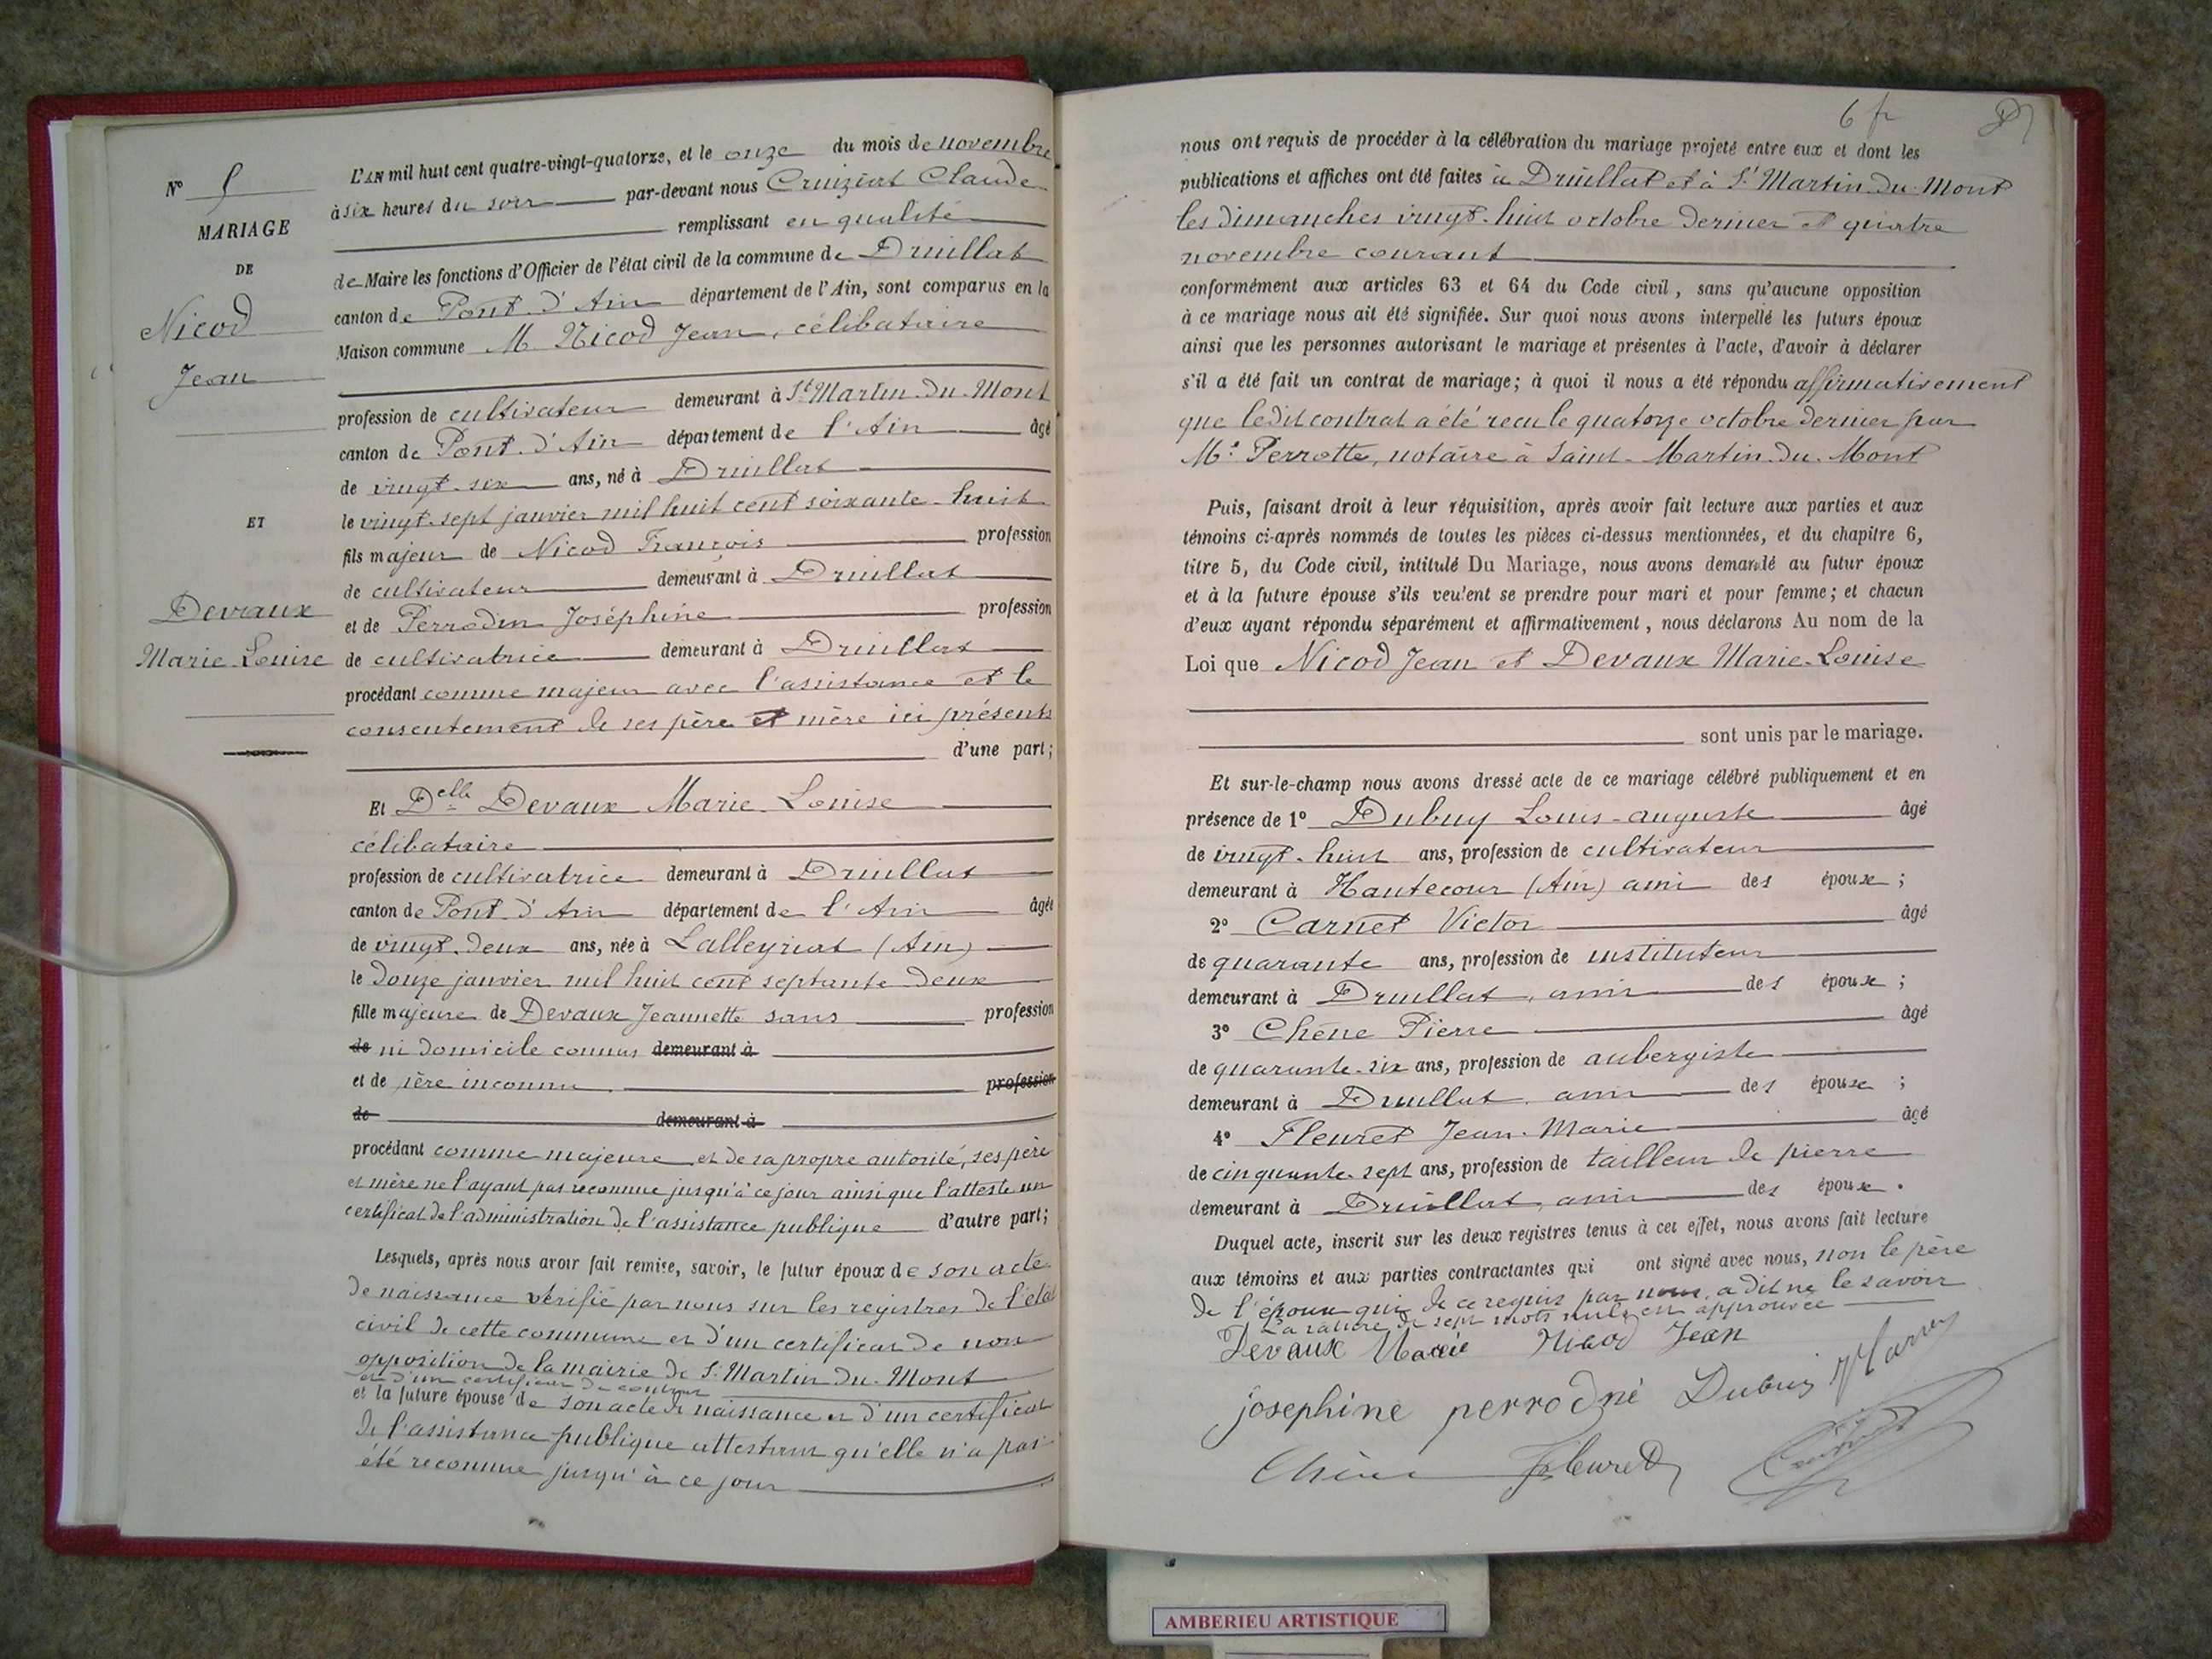 N°
MARIAGE
DE
Nicod
Jean
ET
Devaux
Marie-Louise
L'AN mil huit cent quatre-vingt-quatorze, et le onze du mois de novembre
à six heures du soir par-devant nous Cruiziat Claude
remplissant en qualité
de Maire les fonctions d'Officier de l'état civil de la commune de Druillat
canton de Pont-d'Ain département de l'Ain, sont comparus en la
Maison commune M. Nicod Jean, célibataire
profession de cultivateur demeurant à St Martin-du-Mont
canton de Pont-d'Ain département de l'Ain âgé
de vingt-six ans, né à Druillat
le vingt-sept janvier mil huit cent soixante-huit
fils majeur de Nicod François profession
de cultivateur demeurant à Druillat
et de Perrodin Joséphine profession
de cultivatrice demeurant à Druillat
procédant comme majeur avec l'assistance et le
consentement de ses père et mère ici présents
d'une part;
Et Delle Devaux Marie-Louise
célibataire
profession de cultivatrice demeurant à Druillat
canton de Pont-d'Ain département de l'Ain âgée
de vingt-deux ans, née à Lalleyriat (Ain)
le douze janvier mil huit cent septante-deux
fille majeure de Devaux Jeannette sans profession
de ni domicile connus demeurant à
et de père inconnu profession
de demeurant à
procédant comme majeure et de sa propre autorité, ses père
et mère ne l'ayant pas reconnue jusqu'à ce jour ainsi que l'atteste un
certificat de l'administration de l'assistance publique d'autre part;
Lesquels, après nous avoir fait remise, savoir, le futur époux de son acte
de naissance vérifié par nous sur les registres de l'état
civil de cette commune et d'un certificat de non
opposition de la mairie de St Martin-du-Mont
et d'un certificat de contrat
et la future épouse de son acte de naissance et d'un certificat
de l'assistance publique attestant qu'elle n'a pas
été reconnue jusqu'à ce jour
6 fr
nous ont requis de procéder à la célébration du mariage projeté entre eux et dont les
publications et affiches ont été faites à Druillat et à St Martin-du-Mont
les dimanches vingt-huit octobre dernier et quatre
novembre courant
conformément aux articles 63 et 64 du Code civil, sans qu'aucune opposition
à ce mariage nous ait été signifiée. Sur quoi nous avons interpellé les futurs époux
ainsi que les personnes autorisant le mariage et présentes à l'acte, d'avoir à déclarer
s'il a été fait un contrat de mariage; à quoi il nous a été répondu affirmativement
que ledit contrat a été recu le quatorze octobre dernier par
Me Perrotte, notaire à Saint-Martin-du-Mont
Puis, faisant droit à leur réquisition, après avoir fait lecture aux parties et aux
témoins ci-après nommés de toutes les pièces ci-dessus mentionnées, et du chapitre 6,
titre 5, du Code civil, intitulé Du Mariage, nous avons demandé au futur époux
et à la future épouse s'ils veulent se prendre pour mari et pour femme; et chacun
d'eux ayant répondu séparément et affirmativement, nous déclarons Au nom de la
Loi que Nicod Jean et Devaux Marie-Louise
sont unis par le mariage.
Et sur-le-champ nous avons dressé acte de ce mariage célébré publiquement et en
présence de 1° Dubuy Louis-auguste âgé
de vingt-huit ans, profession de cultivateur
demeurant à Hautecour (Ain) ami des époux;
2° Carnet Victor âgé
de quarante ans, profession de instituteur
demeurant à Druillat, ami des époux;
3° Chêne Pierre âgé
de quarante-six ans, profession de aubergiste
demeurant à Druillat, ami des époux;
4° Fleuret Jean-Marie âgé
de cinquante-sept ans, profession de tailleur de pierre
demeurant à Druillat, ami des époux.
Duquel acte, inscrit sur les deux registres tenus à cet effet, nous avons fait lecture
aux témoins et aux parties contractantes qui ont signé avec nous, non le père
de l'époux qui de ce requis par nous, a dit ne le savoir
La rature de sept mots nuls est approuvée
Devaux Marie Nicod Jean
josephine perrodné Dubuy
Chêne Fleuret
AMBERIEU ARTISTIQUE